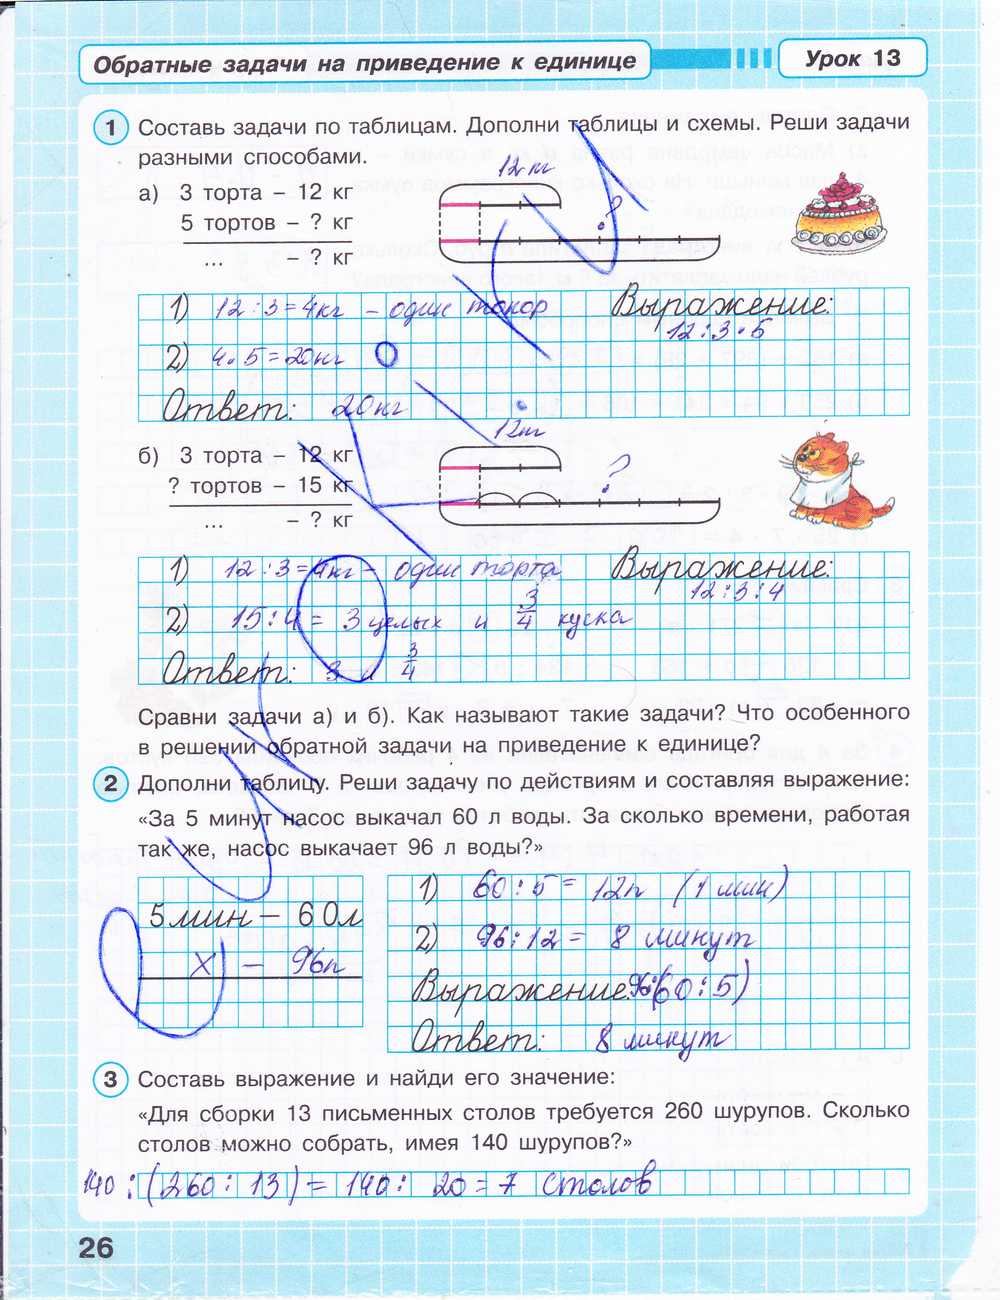 Обратные задачи на приведение к единице
Урок 13
1 Составь задачи по таблицам. Дополни таблицы и схемы. Реши задачи
разными способами.
12 кг
а) 3 торта – 12 кг
5 тортов – ? кг
?
... – ? кг
1) 12 : 3 = 4кг – один Выражение:
12 : 3 • 5
2) 4 • 5 = 20кг
Ответ: 20кг
12кг
б) 3 торта – 12 кг
? тортов – 15 кг
?
... – ? кг
1) 12 : 3 = 4кг – один торта Выражение:
12 : 3 : 4
2) 15 : 4 = 3 целых и 3/4 куска
Ответ: 3 и 3/4
Сравни задачи а) и б). Как называют такие задачи? Что особенного
в решении обратной задачи на приведение к единице?
2 Дополни таблицу. Реши задачу по действиям и составляя выражение:
«За 5 минут насос выкачал 60 л воды. За сколько времени, работая
так же, насос выкачает 96 л воды?»
5 мин – 60л
x – 96л
1) 60 : 5 = 12л (1 мин)
2) 96 : 12 = 8 минут
Выражение: 96:(60 : 5)
Ответ: 8 минут
3 Составь выражение и найди его значение:
«Для сборки 13 письменных столов требуется 260 шурупов. Сколько
столов можно собрать, имея 140 шурупов?»
140 : (260 : 13) = 140 : 20 = 7 столов
26